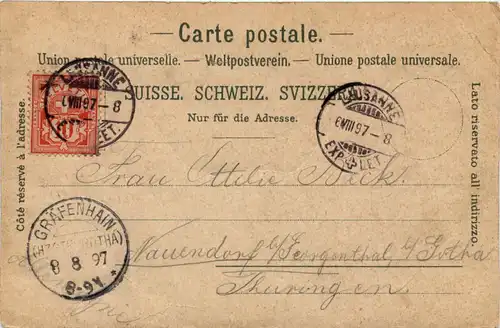 Carte postale.
Union postale universelle. — Weltpostverein. — Unione postale universale.
SUISSE. SCHWEIZ. SVIZZERA.
Nur für die Adresse.
Côté réservé à l'adresse.
Lato riservato all' indirizzo.
LAUSANNE
VIII 97 – 8
EXP. LET.
LAUSANNE
VIII 97 – 8
EXP. LET.
Frau Ottilie Beck.
Nauendorf b/Georgenthal, b/Gotha
Thüringen.
GRÄFENHAIN
(HZGTH. GOTHA)
8 8 97
8-9V *